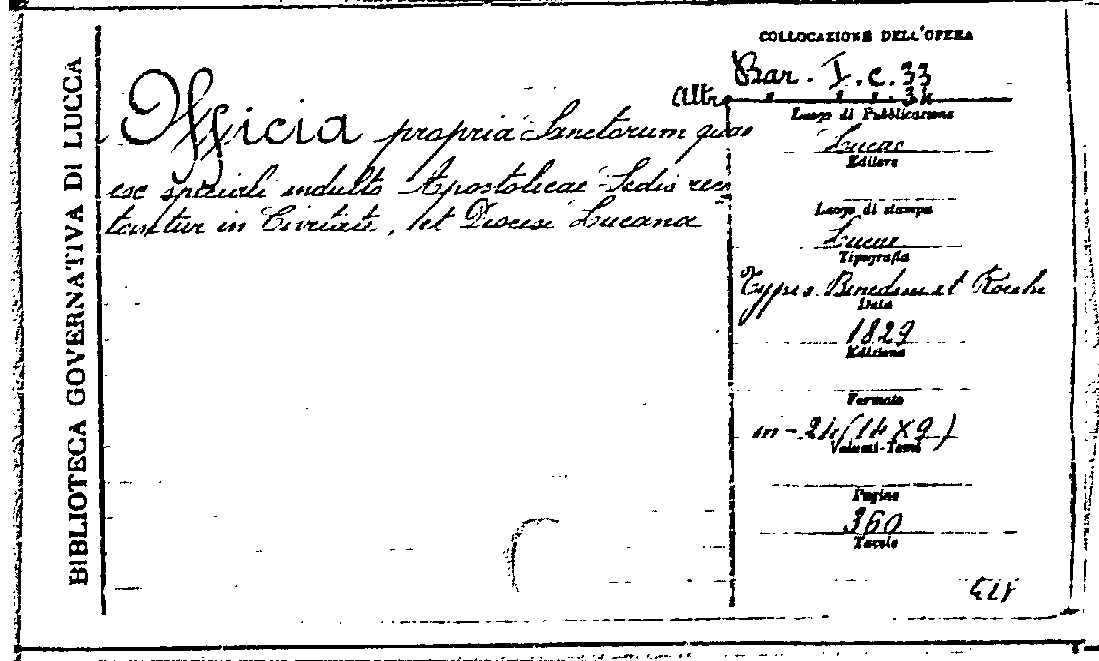 BIBLIOTECA GOVERNATIVA DI LUCCA
Officia propria Sanctorum quae
ex speciali indulto Apostolicae Sedis reci
tantur in Civitate, et Diocesi Lucana
COLLOCAZIONE DELL'OPERA
Bar. I. c. 33
Altr. " " " 34
Luogo di Pubblicazione
Lucae
Editore
Luogo di stampa
Lucae
Tipografia
Typis Rocchi
Data
1829
Edizione
Formato
in-24 (14 X 9)
Volumi-Tomi
Pagine
360
Tavole